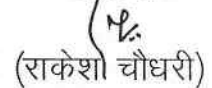 (राकेश चौधरी)